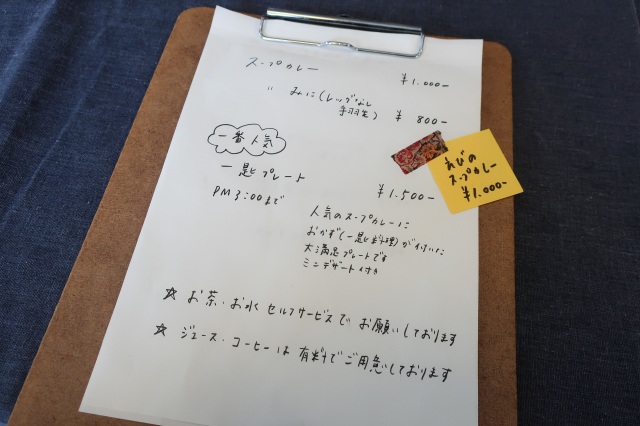 スープカレー ¥1.000-
〃 みに(レッグなし
手羽先) ¥800-
一番人気
一匙プレート ¥1.500-
PM3:00まで
人気のスープカレーに
おかず(一匙料理)が付いた
大満足プレートです
ミニデザート付き
えびの
スープカレー
¥1.000-
☆ お茶・お水 セルフサービスで お願いしております
☆ ジュース・コーヒーは 有料でご用意しております